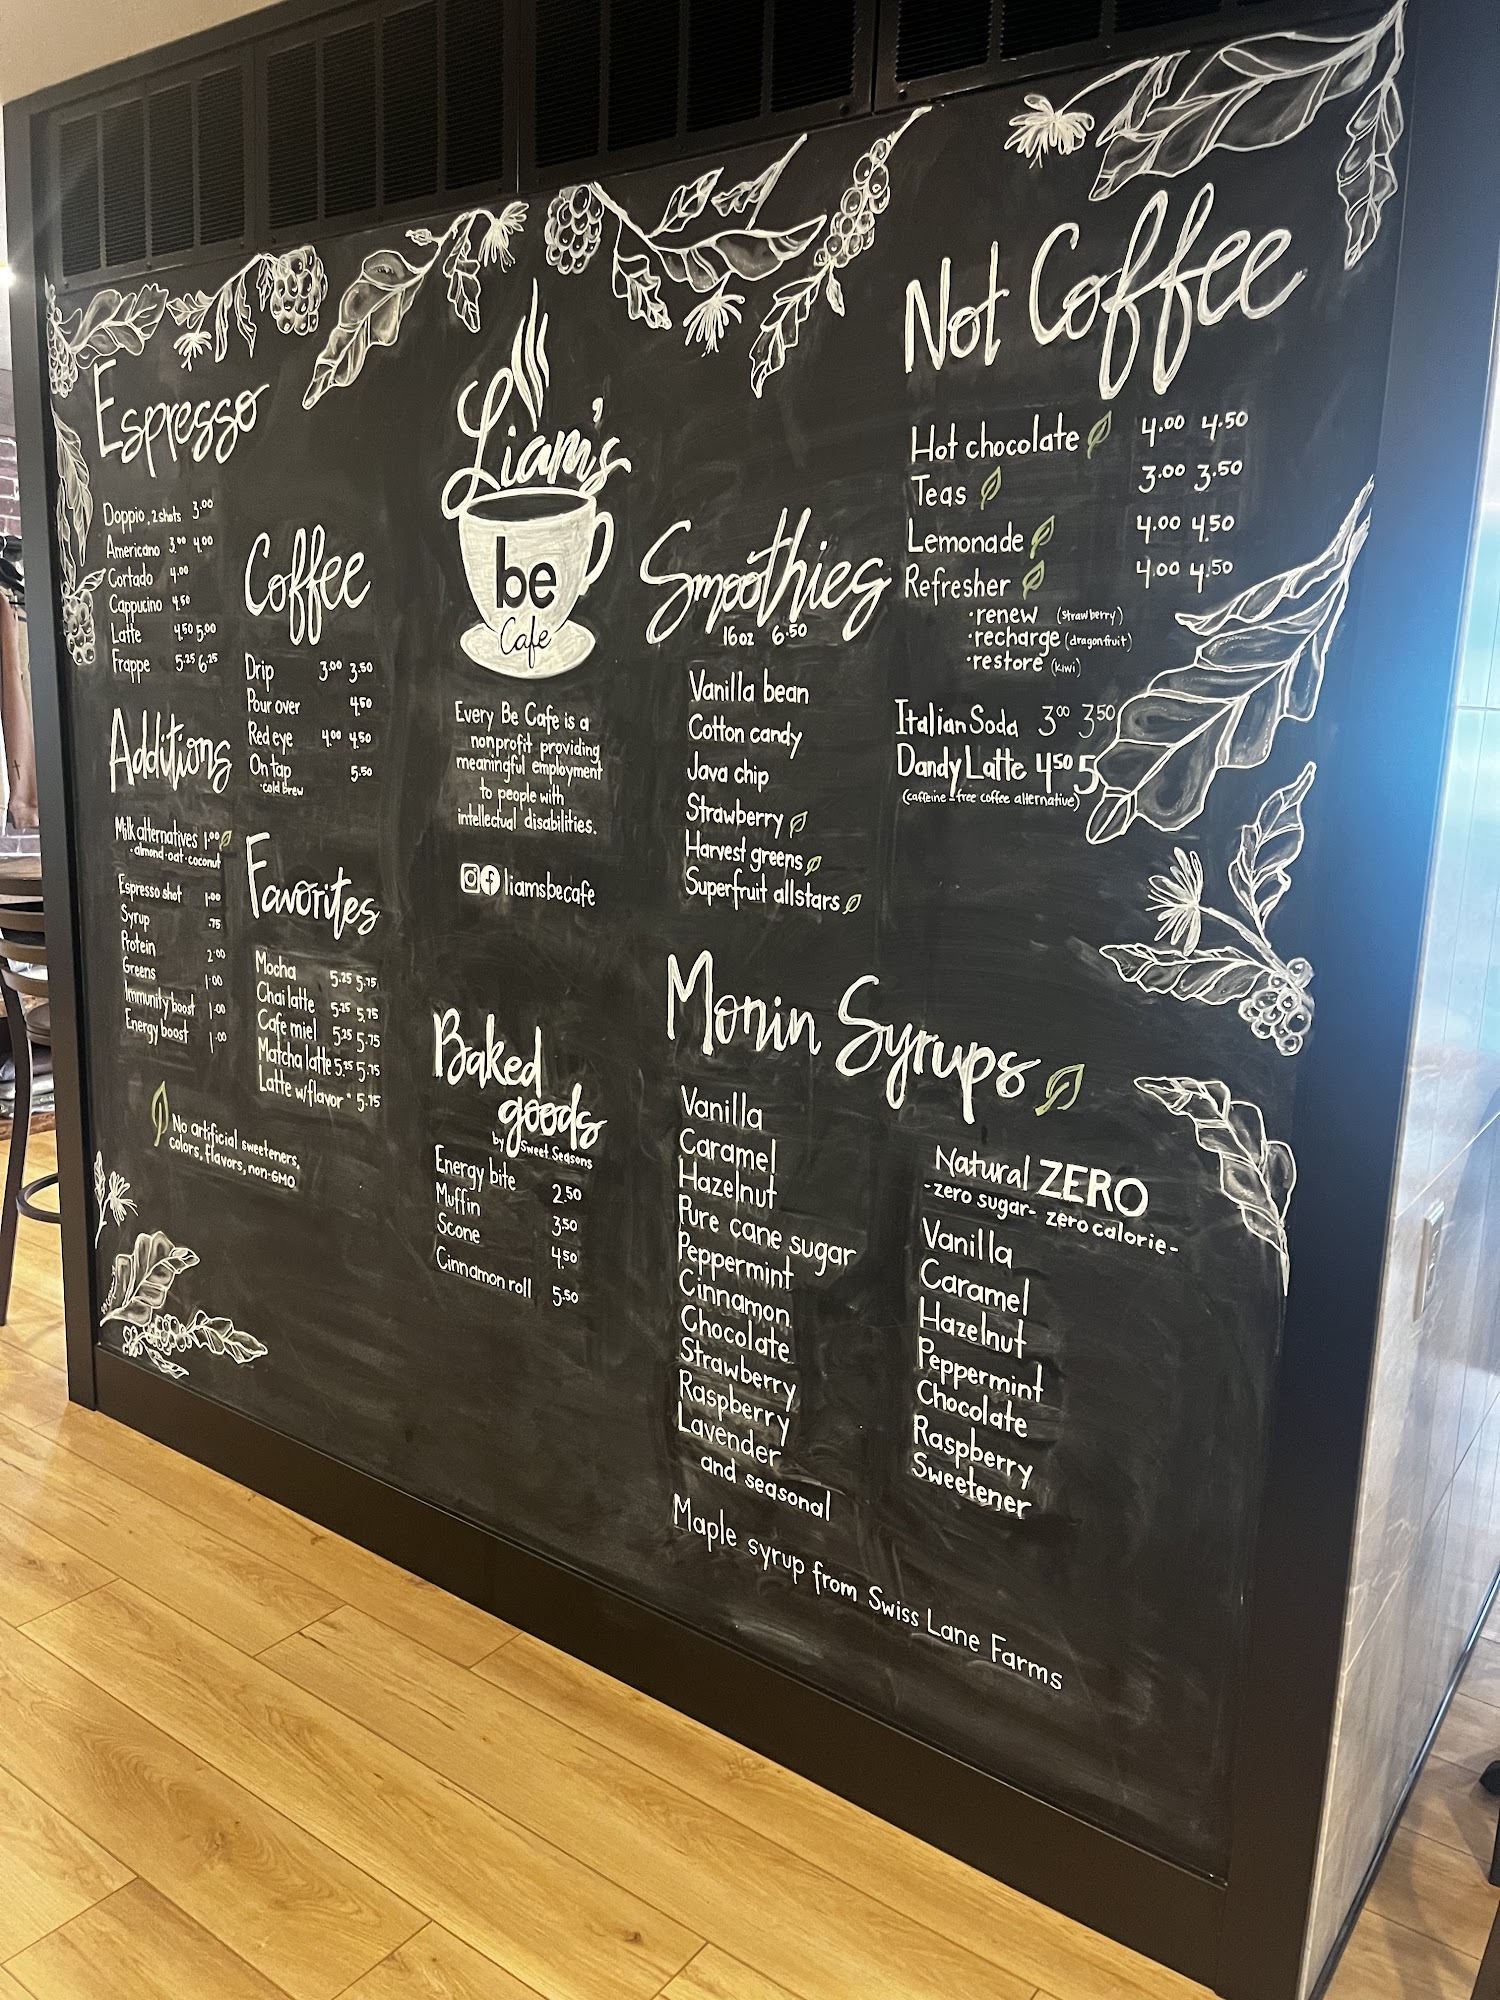 Espresso
Doppio, 2 shots 3.00
Americano 3.00 4.00
Cortado 4.00
Cappucino 4.50
Latte 4.50 5.00
Frappe 5.25 6.25
Additions
Milk alternatives 1.00
·almond·oat·coconut
Espresso shot 1.00
Syrup .75
Protein 2.00
Greens 1.00
Immunity boost 1.00
Energy boost 1.00
No artificial sweeteners,
colors, flavors, non-GMO
Coffee
Drip 3.00 3.50
Pour over 4.50
Red eye 4.00 4.50
On tap 5.50
·cold brew
Favorites
Mocha 5.25 5.75
Chai latte 5.25 5.75
Cafe miel 5.25 5.75
Matcha latte 5.25 5.75
Latte w/flavor 5.75
Liam's
be
Cafe
Every Be Cafe is a
nonprofit providing
meaningful employment
to people with
intellectual disabilities.
liamsbecafe
Baked
goods
by Sweet Seasons
Energy bite 2.50
Muffin 3.50
Scone 4.50
Cinnamon roll 5.50
Smoothies
16oz 6.50
Vanilla bean
Cotton candy
Java chip
Strawberry
Harvest greens
Superfruit allstars
Not Coffee
Hot chocolate 4.00 4.50
Teas 3.00 3.50
Lemonade 4.00 4.50
Refresher 4.00 4.50
·renew (strawberry)
·recharge (dragonfruit)
·restore (kiwi)
Italian Soda 3.00 3.50
Dandy Latte 4.50 5
(caffeine-free coffee alternative)
Monin Syrups
Vanilla
Caramel
Hazelnut
Pure cane sugar
Peppermint
Cinnamon
Chocolate
Strawberry
Raspberry
Lavender
and seasonal
Natural ZERO
-zero sugar- zero calorie-
Vanilla
Caramel
Hazelnut
Peppermint
Chocolate
Raspberry
Sweetener
Maple syrup from Swiss Lane Farms